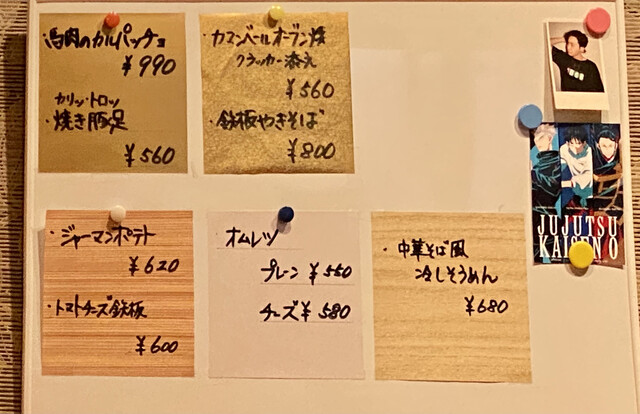 ・馬肉のカルパッチョ
¥990
カリッ・トロッ
・焼き豚足
¥560
・カマンベールオーブン焼
クラッカー添え
¥560
・鉄板やきそば
¥800
・ジャーマンポテト
¥620
・トマトチーズ鉄板
¥600
オムレツ
プレーン ¥550
チーズ ¥580
・中華そば風
冷しそうめん
¥680
JUJUTSU
KAISEN 0